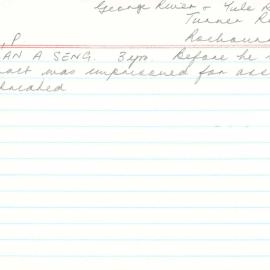 George River & Yule R
Turner R
Roebourn
, P
AN A SENG. 3 yrs. Before he
was imprisoned for ass